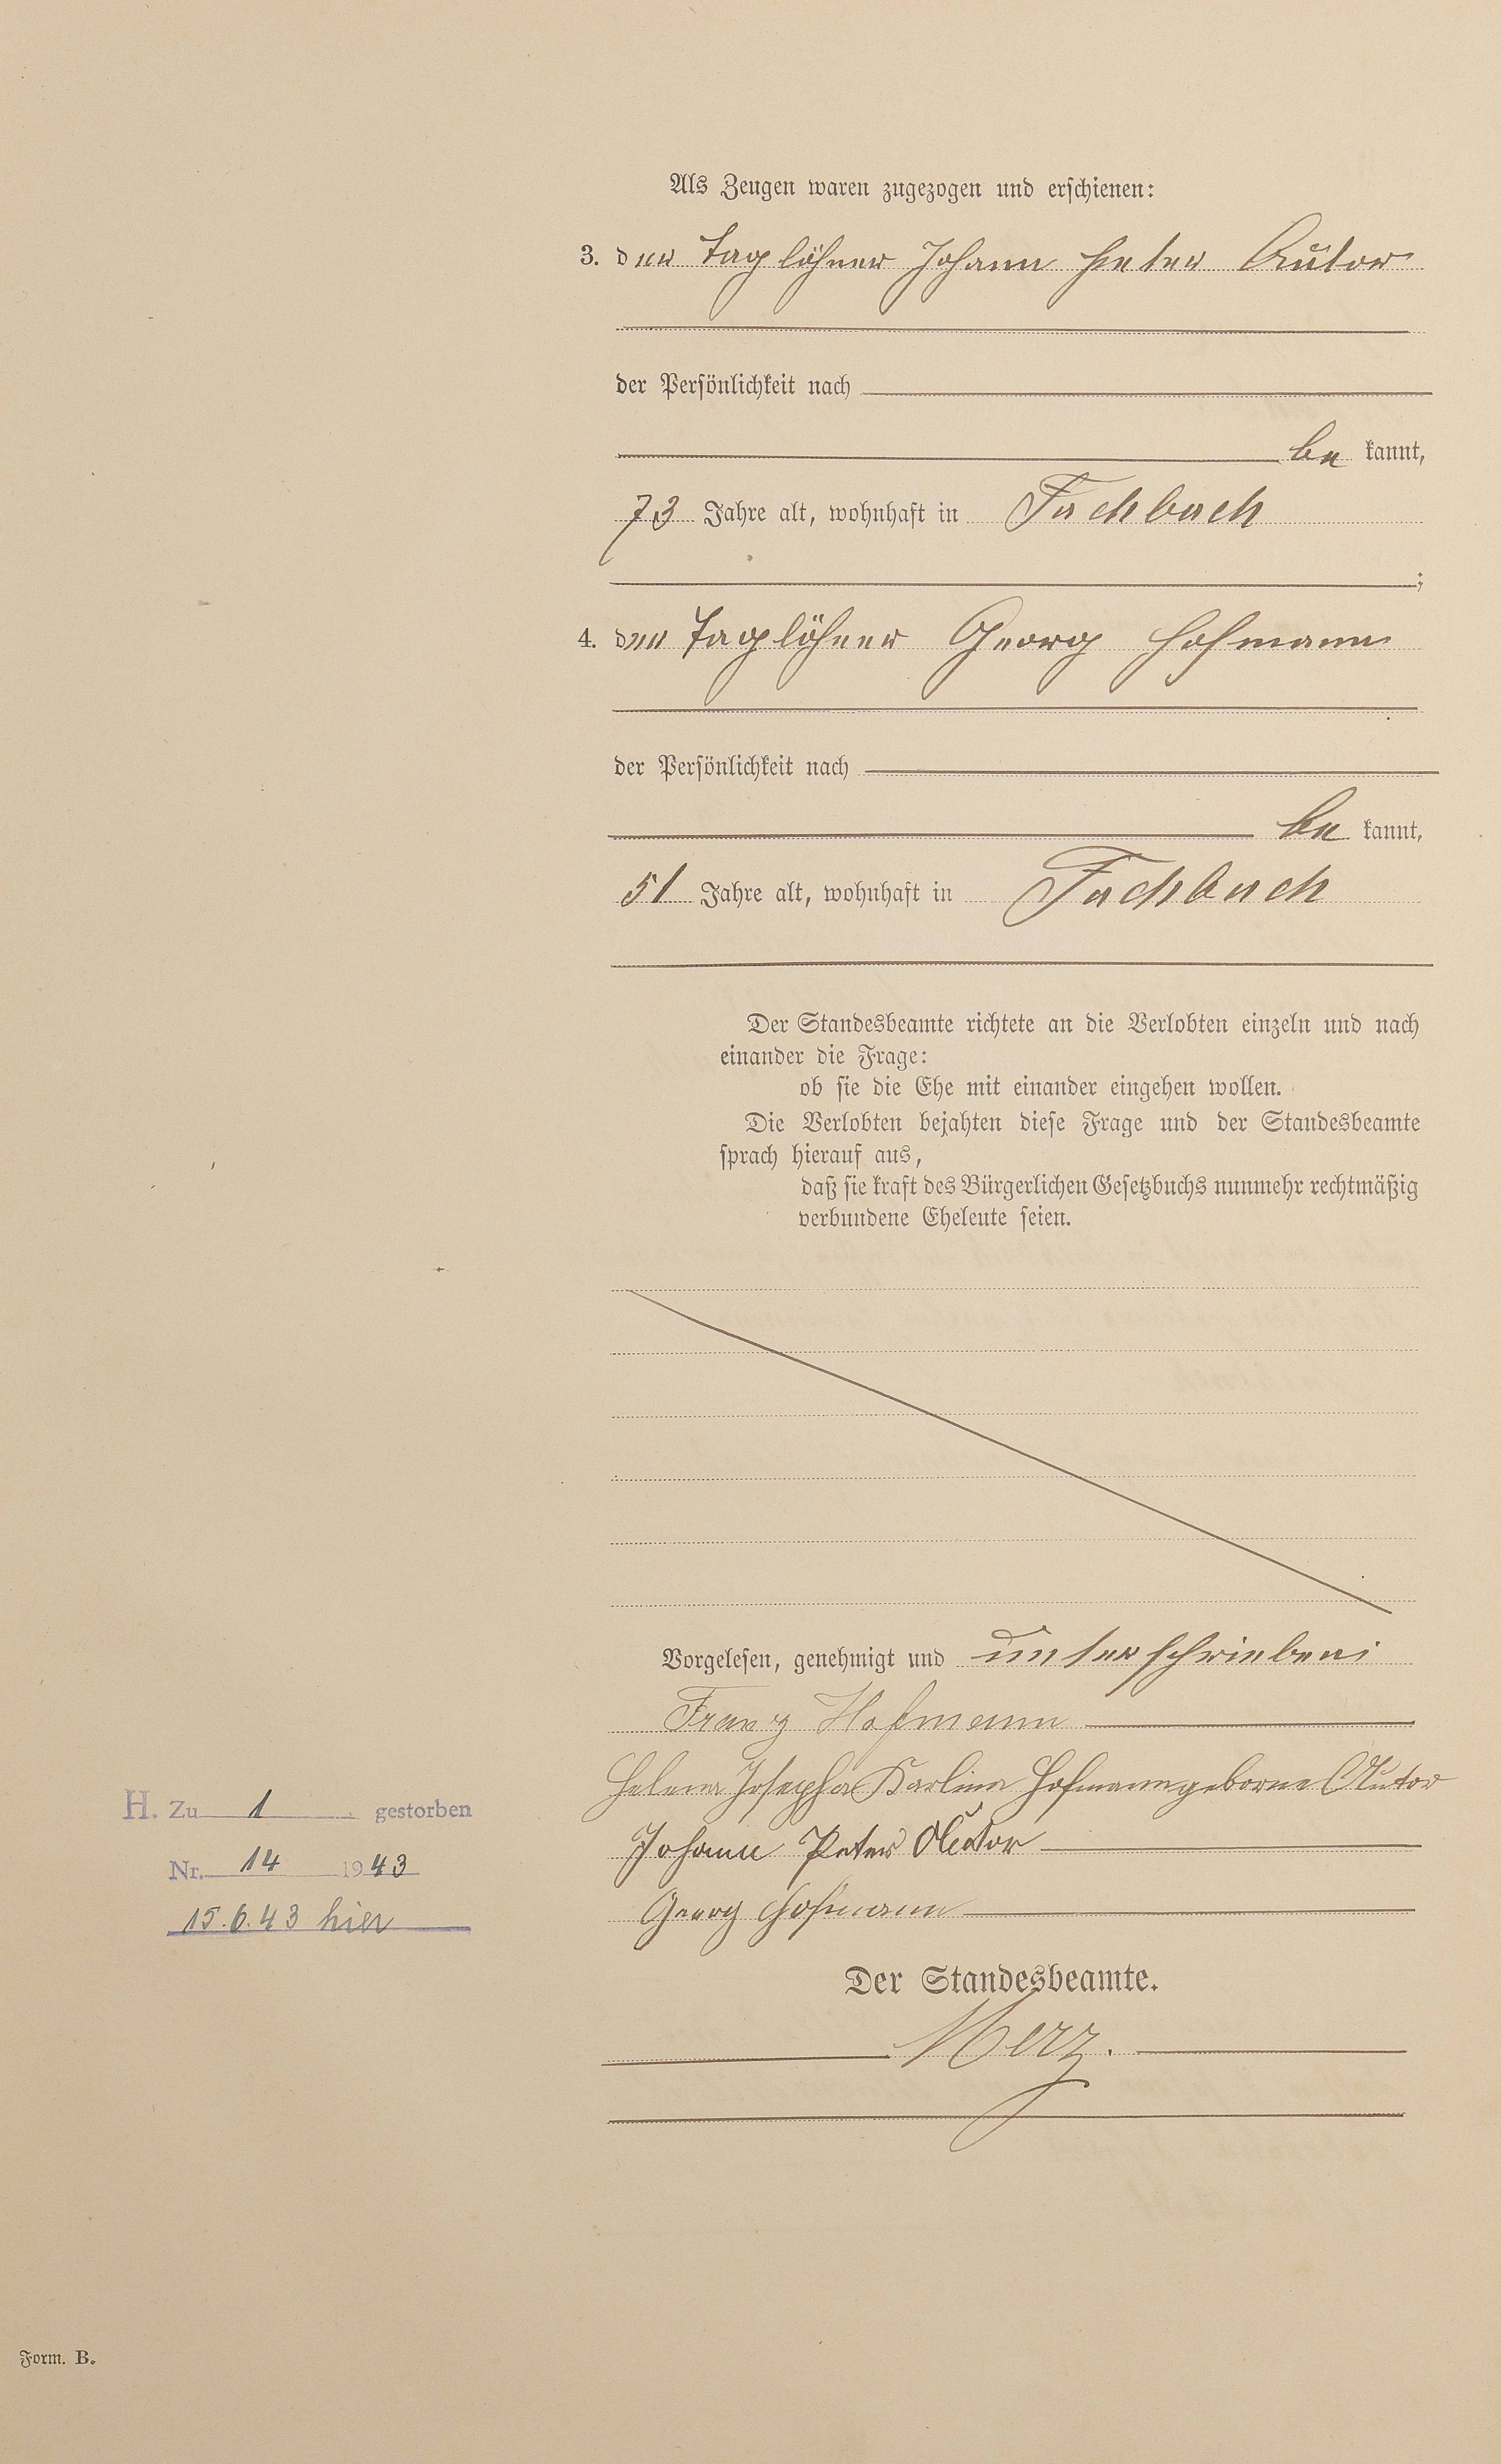 Als Zeugen waren zugezogen und erschienen:
3. der Taglöhner Johann Peter Autor
der Persönlichkeit nach
be kannt,
73 Jahre alt, wohnhaft in Fachbach
;
4. der Taglöhner Georg Hofmann
der Persönlichkeit nach
be kannt,
51 Jahre alt, wohnhaft in Fachbach
Der Standesbeamte richtete an die Verlobten einzeln und nach
einander die Frage:
ob sie die Ehe mit einander eingehen wollen.
Die Verlobten bejahten diese Frage und der Standesbeamte
sprach hierauf aus,
daß sie kraft des Bürgerlichen Gesetzbuchs nunmehr rechtmäßig
verbundene Eheleute seien.
Vorgelesen, genehmigt und unterschrieben:
Franz Hofmann
Helena Josepha Karlina Hofmann geborne Autor
Johann Peter Autor
Georg Hofmann
Der Standesbeamte.
Merz.
H. Zu 1 gestorben
Nr. 14 1943
15.6.43 hier
Form. B.